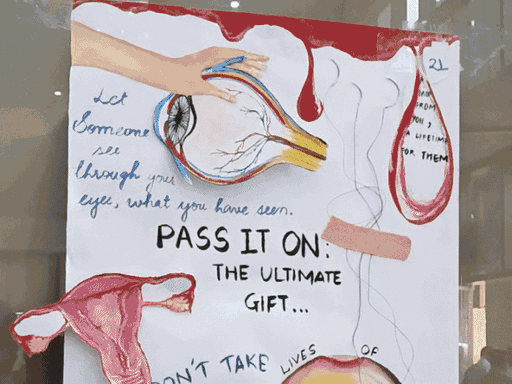 Let
Someone
see
through your
eyes, what you have seen.
21
FROM
YOU,
A LIFETIME
FOR THEM
PASS IT ON:
THE ULTIMATE
GIFT...
DON'T TAKE LIVES OF